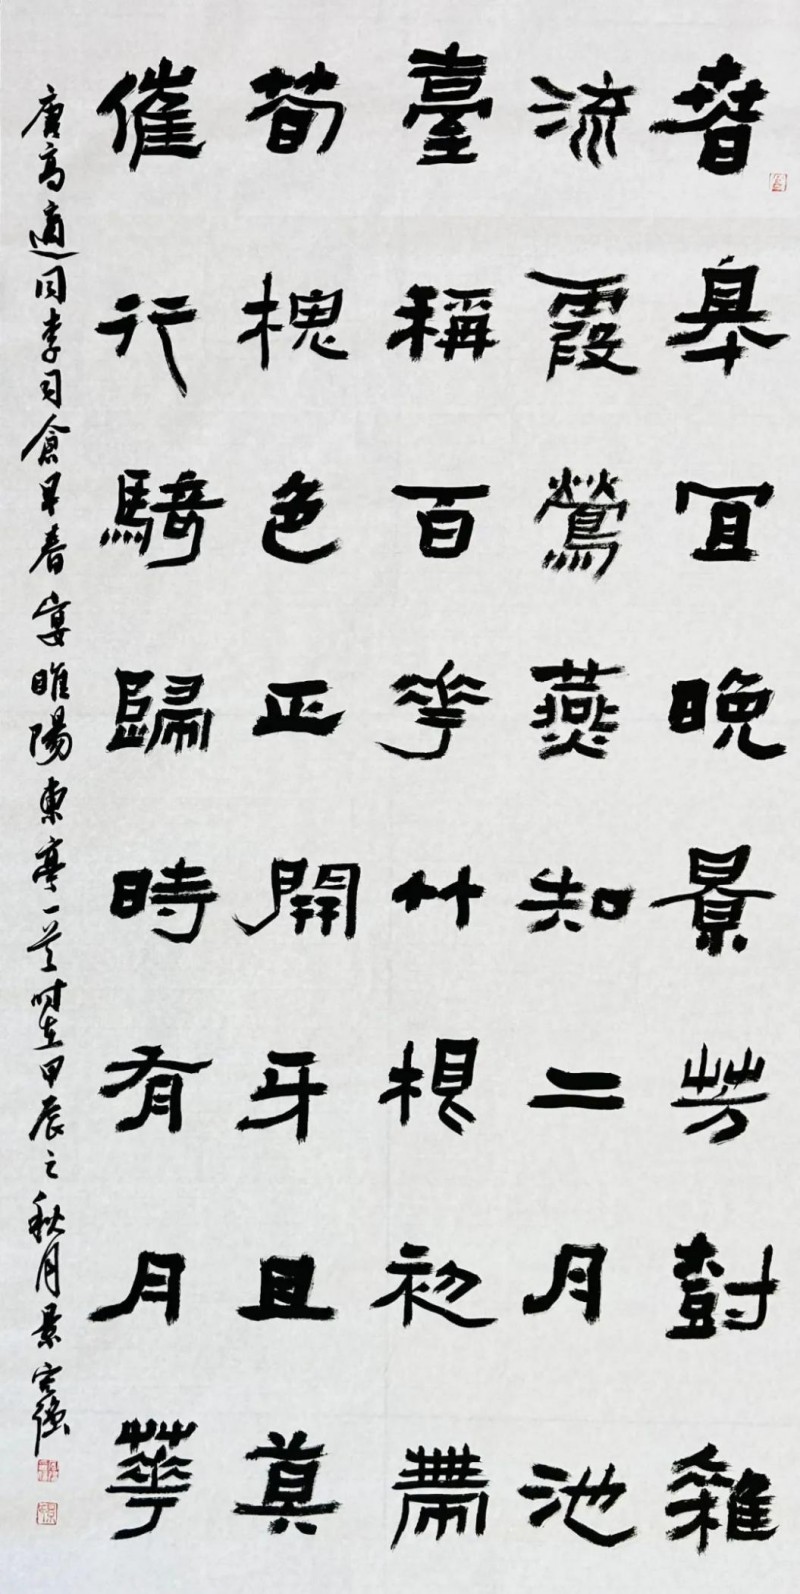 春皋宜晚景芳樹雜
流霞鶯燕知二月池
臺稱百花竹根初帶
筍槐色正開牙且莫
催行騎歸時有月華
唐高適同李司倉早春宴睢陽東亭一首時在甲辰之秋月景強